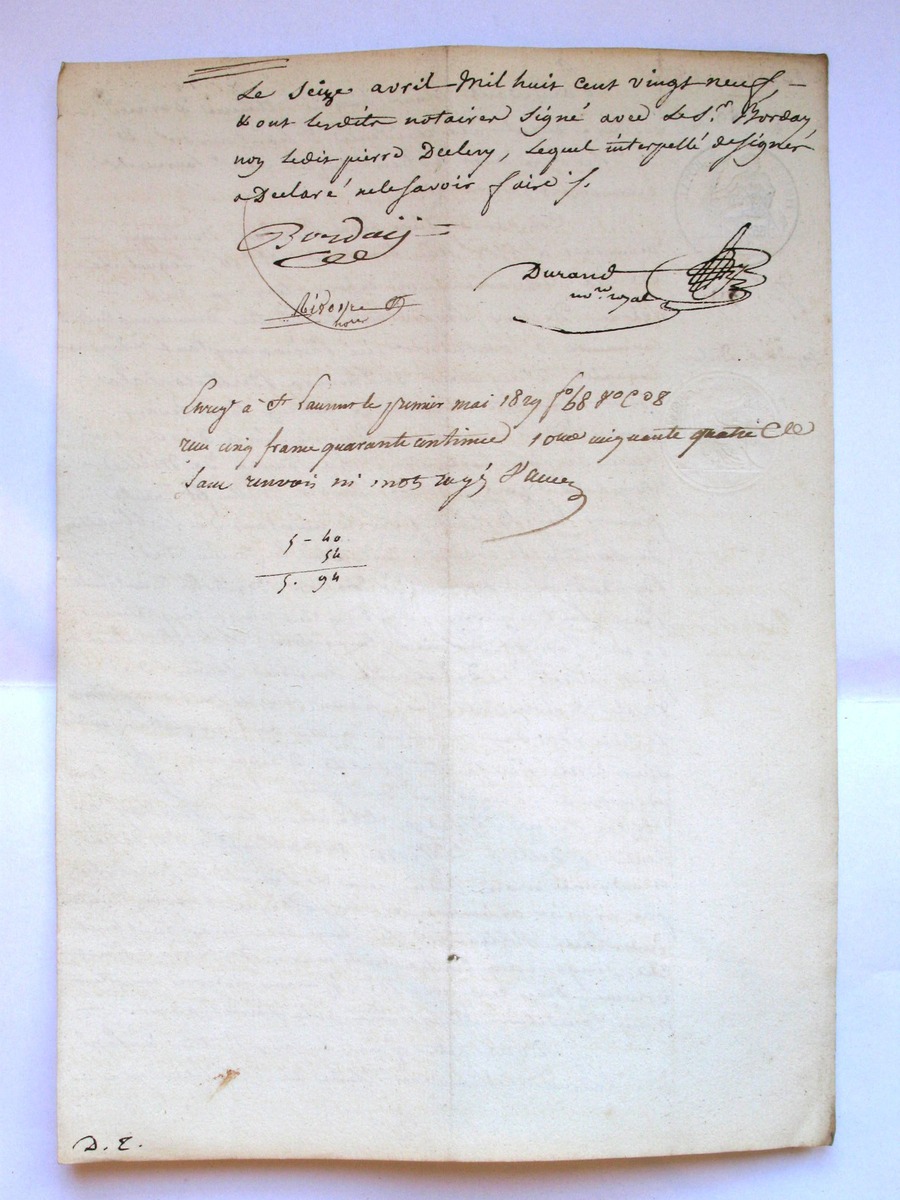 Le Seize avril Mil huit cent vingt neuf, —
Et ont lesdits notaires signé avec le Sr. Borday
non ledit pierre Declery, lequel interpellé de signer
a Déclaré ne le Savoir faire ./.
Borday
Durand
nore. royal
notre
Enregé à St Laurent le premier mai 1829 fo 68 Vo C 8
reçu cinq francs quarante centimes 10me cinquante quatre Ces
Sans renvois ni mots rayés
5 - 40
54
5. 94
D. E.